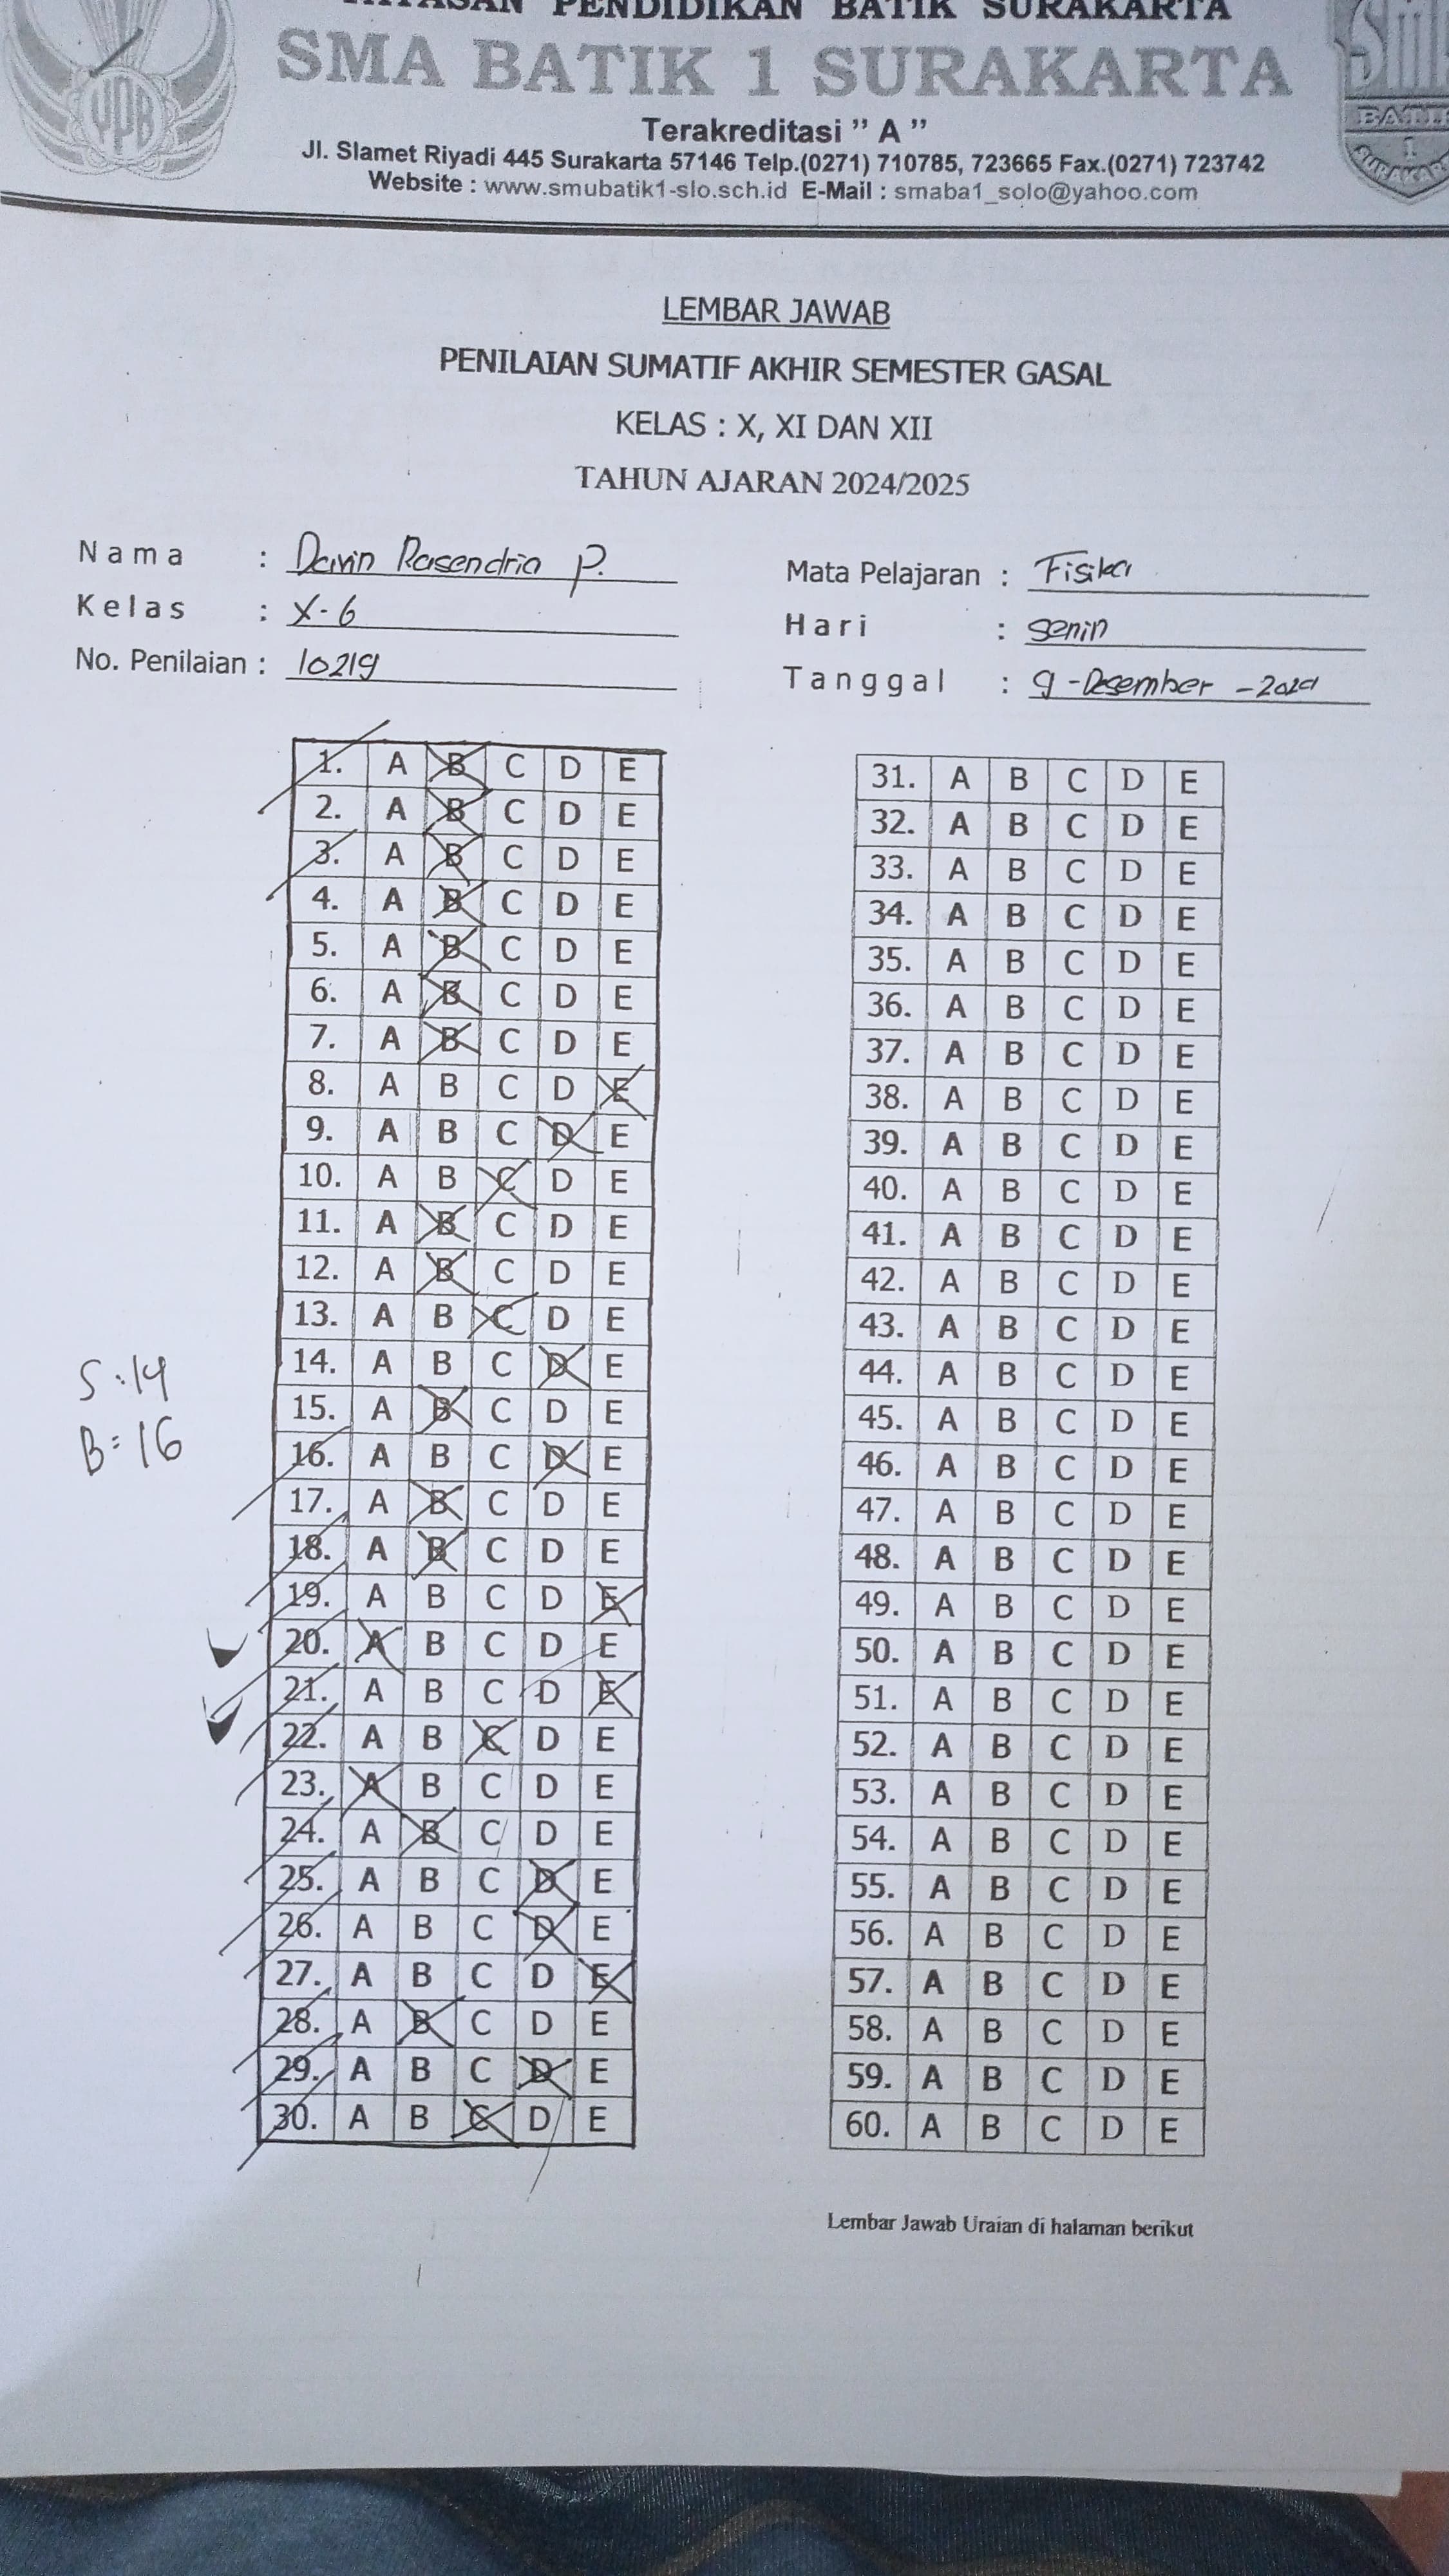 YAYASAN PENDIDIKAN BATIK SURAKARTA
SMA BATIK 1 SURAKARTA
Terakreditasi " A "
Jl. Slamet Riyadi 445 Surakarta 57146 Telp.(0271) 710785, 723665 Fax.(0271) 723742
Website : www.smubatik1-slo.sch.id E-Mail : smaba1_solo@yahoo.com
YPB
BATIK
1
LEMBAR JAWAB
PENILAIAN SUMATIF AKHIR SEMESTER GASAL
KELAS : X, XI DAN XII
TAHUN AJARAN 2024/2025
Nama : Davin Rasendria P.
Kelas : X-6
No. Penilaian : 10219
Mata Pelajaran : Fisika
Hari : Senin
Tanggal : 9 - Desember - 2024
1. A B C D E
2. A B C D E
3. A B C D E
4. A B C D E
5. A B C D E
6. A B C D E
7. A B C D E
8. A B C D E
9. A B C D E
10. A B C D E
11. A B C D E
12. A B C D E
13. A B C D E
14. A B C D E
15. A B C D E
16. A B C D E
17. A B C D E
18. A B C D E
19. A B C D E
20. A B C D E
21. A B C D E
22. A B C D E
23. A B C D E
24. A B C D E
25. A B C D E
26. A B C D E
27. A B C D E
28. A B C D E
29. A B C D E
30. A B C D E
S : 14
B = 16
31. A B C D E
32. A B C D E
33. A B C D E
34. A B C D E
35. A B C D E
36. A B C D E
37. A B C D E
38. A B C D E
39. A B C D E
40. A B C D E
41. A B C D E
42. A B C D E
43. A B C D E
44. A B C D E
45. A B C D E
46. A B C D E
47. A B C D E
48. A B C D E
49. A B C D E
50. A B C D E
51. A B C D E
52. A B C D E
53. A B C D E
54. A B C D E
55. A B C D E
56. A B C D E
57. A B C D E
58. A B C D E
59. A B C D E
60. A B C D E
Lembar Jawab Uraian di halaman berikut